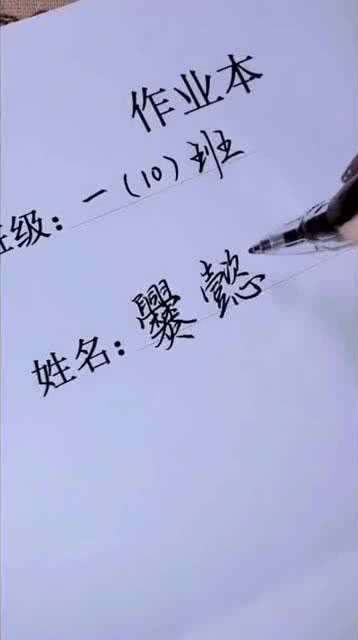 作业本
班级：一（10）班
姓名：爨懿